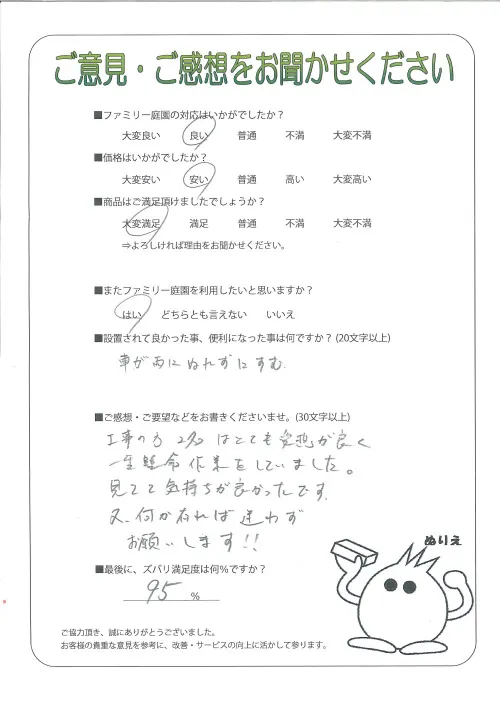 ご意見・ご感想をお聞かせください
■ファミリー庭園の対応はいかがでしたか？
大変良い 良い 普通 不満 大変不満
■価格はいかがでしたか？
大変安い 安い 普通 高い 大変高い
■商品はご満足頂けましたでしょうか？
大変満足 満足 普通 不満 大変不満
⇒よろしければ理由をお聞かせください。
■またファミリー庭園を利用したいと思いますか？
はい どちらとも言えない いいえ
■設置されて良かった事、便利になった事は何ですか？(20文字以上)
車が雨にぬれずにすむ
■ご感想・ご要望などをお書きくださいませ。(30文字以上)
工事の方 はとても愛想が良く
一生懸命作業をしていました。
見てて気持ちが良かったです
又、何か有れば迷わず
お願いします!!
ぬりえ
■最後に、ズバリ満足度は何％ですか？
95 %
ご協力頂き、誠にありがとうございました。
お客様の貴重な意見を参考に、改善・サービスの向上に活かして参ります。